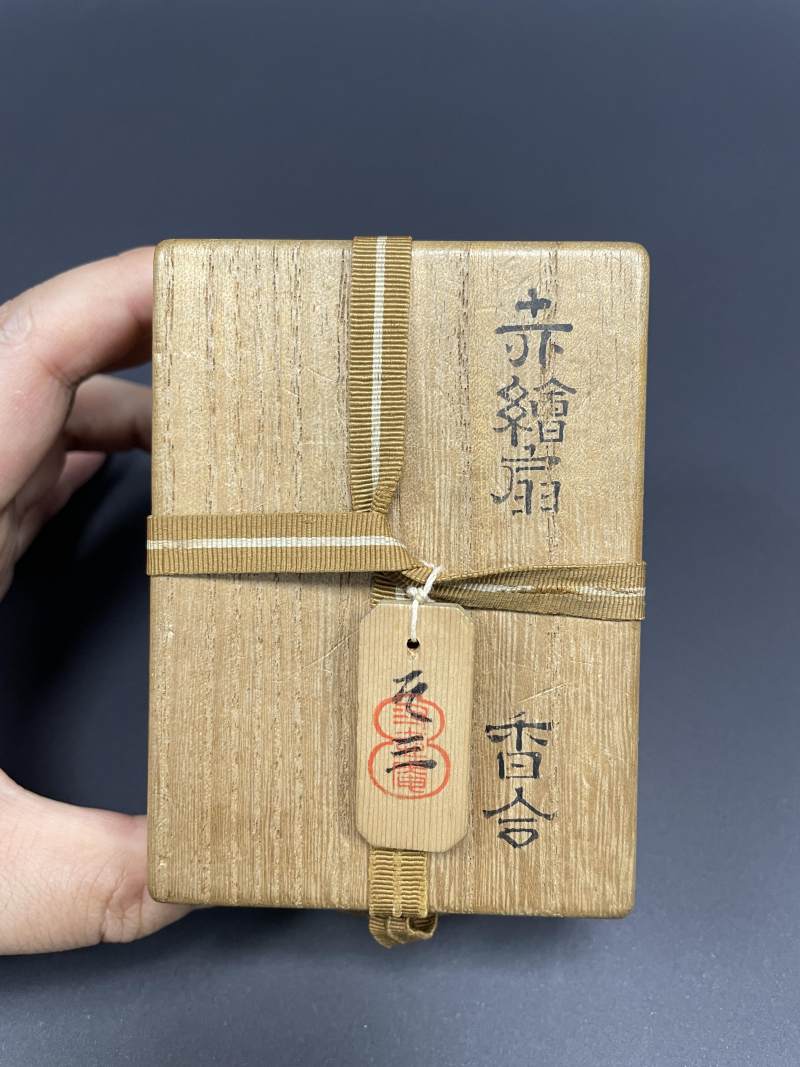 赤繪扇
香合
三